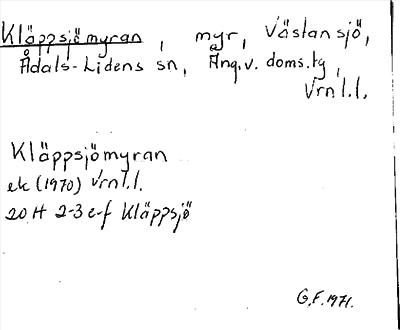 Kläppsjömyran, myr, Västansjö,
Ådals-Lidens sn, Ång.v. doms.tg,
Vrnl.l.
Kläppsjömyran
ek (1970) Vrnl.l.
20 H 2-3 e-f Kläppsjö
G.F. 1971.